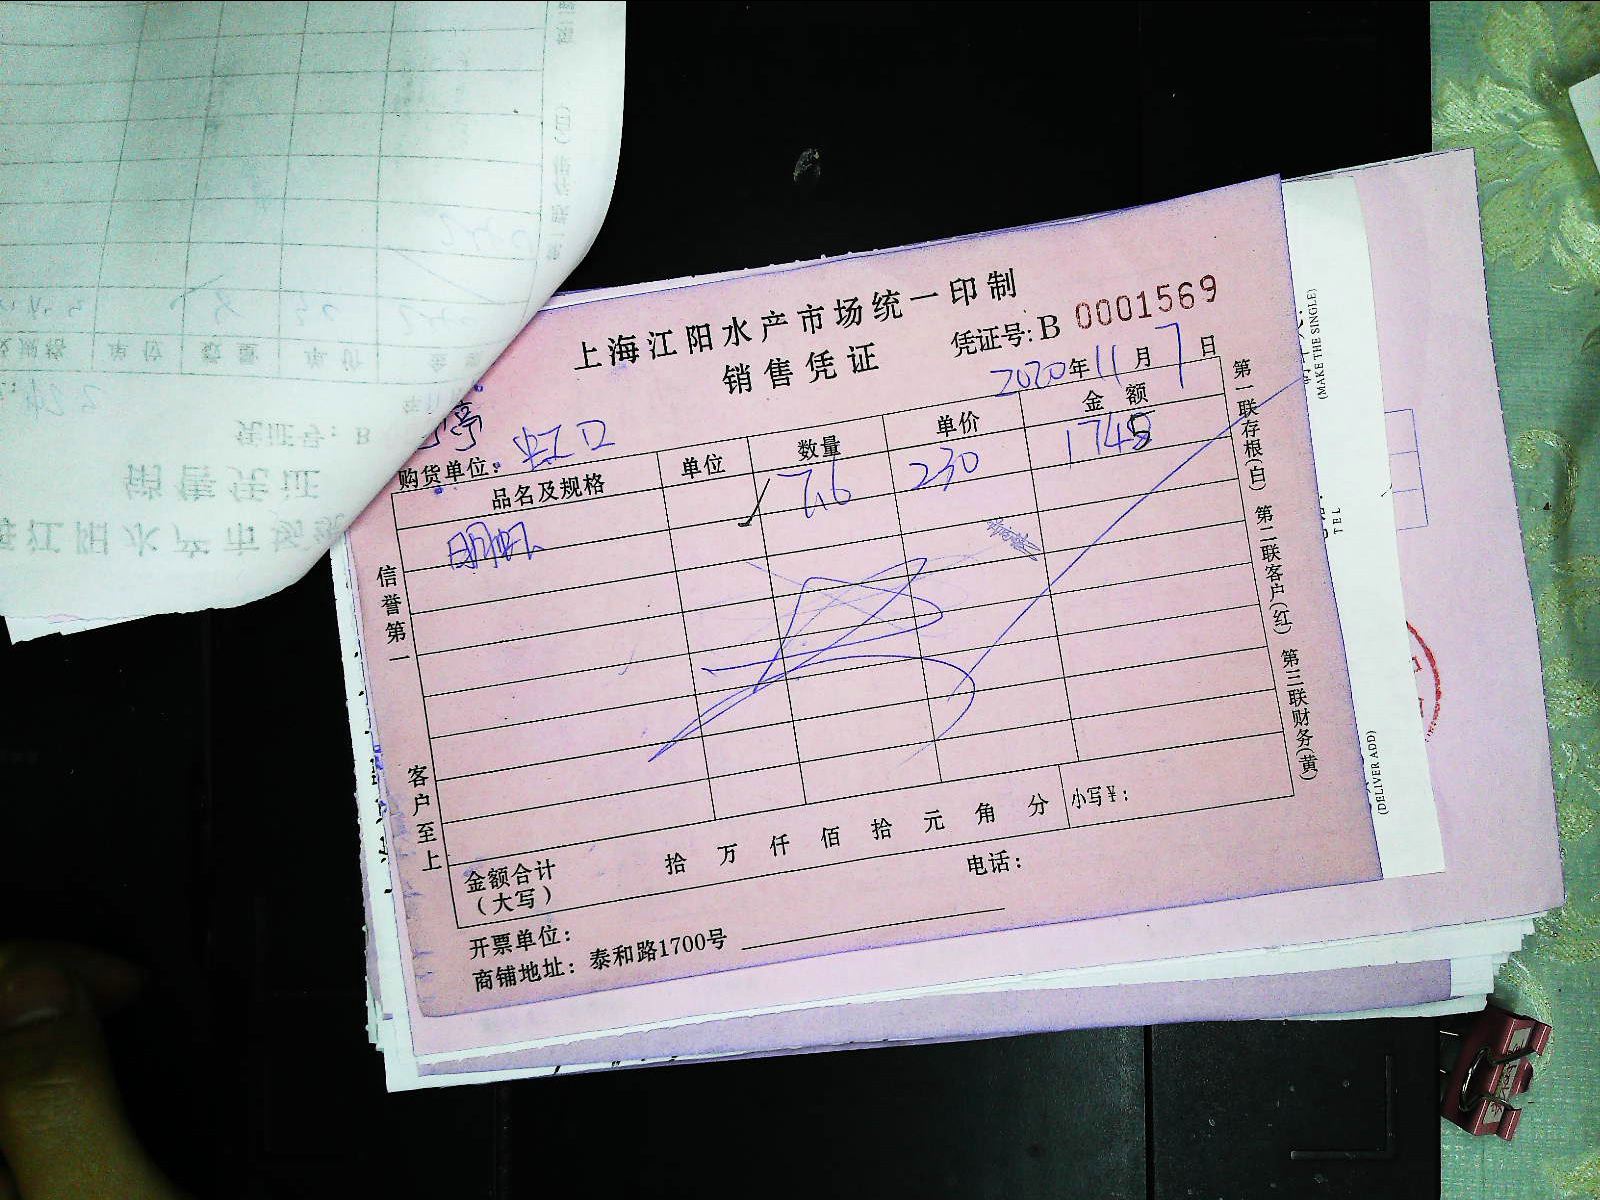 上海江阳水产市场统一印制
销售凭证
凭证号: B 0001569
2020年11月7日
购货单位: 虹口
品名及规格 单位 数量 单价 金额
明虾 7.6 230 1748
信誉第一
客户至上
第一联存根(白) 第二联客户(红) 第三联财务(黄)
金额合计
(大写)
拾 万 仟 佰 拾 元 角 分 小写¥:
开票单位:
电话:
商铺地址: 泰和路1700号
(MAKE THE SINGLE)
TEL
(DELIVER ADD)
销售凭证
凭证号: B